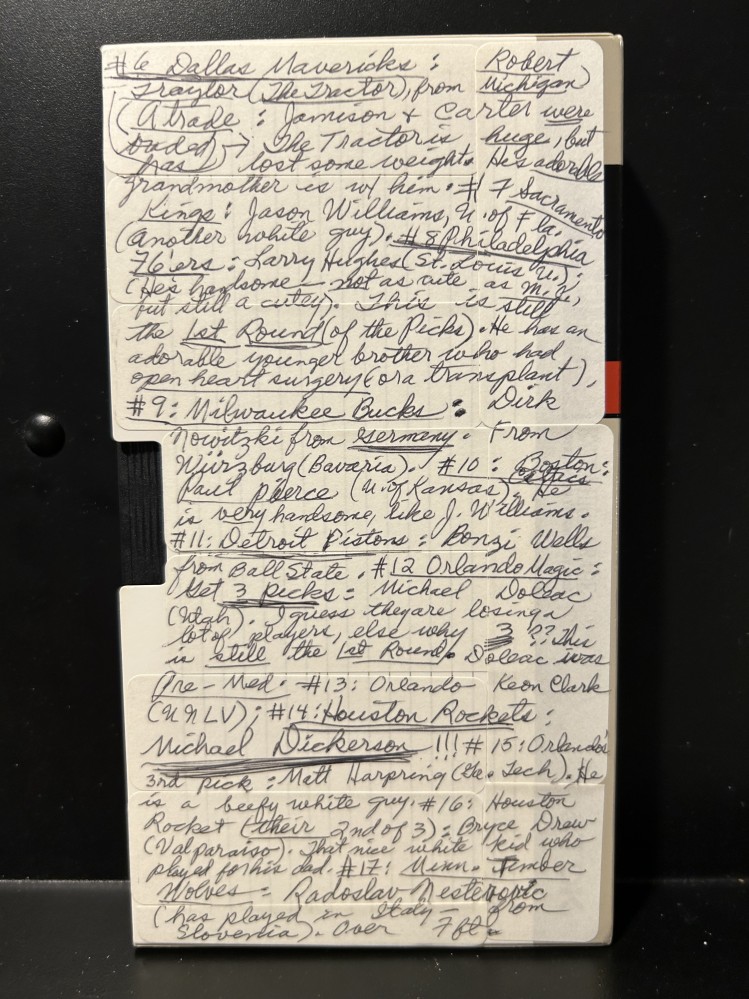 #6 Dallas Mavericks: Robert
Traylor (The Tractor), from Michigan
(A trade: Jamison & Carter were
traded) → The Tractor is huge, but
has lost some weight. He's adorable
grandmother is w/ him. #7 Sacramento
Kings: Jason Williams, U. of Fla.
(another white guy). #8 Philadelphia
76'ers: Larry Hughes (St. Louis U.);
(He's handsome — not as cute as M.D.,
but still a cutey). This is still
the 1st Round (of the Picks). He has an
adorable younger brother who had
open heart surgery (or a transplant),
#9: Milwaukee Bucks: Dirk
Nowitzki from Germany. From
Würzburg (Bavaria). #10: Boston:
Celtics
Paul Pierce (U. of Kansas). He
is very handsome, like J. Williams.
#11: Detroit Pistons: Bonzi Wells
from Ball State. #12 Orlando Magic:
Get 3 picks: Michael Doleac
(Utah). I guess they are losing a
lot of players, else why 3?? This
is still the 1st Round. Doleac was
Pre-Med. #13: Orlando Keon Clark
(UNLV); #14: Houston Rockets:
Michael Dickerson!!! #15: Orlando's
3rd pick: Matt Harpring (Ge. Tech). He
is a beefy white guy. #16: Houston
Rocket (their 2nd of 3): Bryce Drew
(Valparaiso). That nice white kid who
played for his dad. #17: Minn. Timber
Wolves: Radoslav Nesterovic
(has played in Italy – from
Slovenia). Over 7 ft.